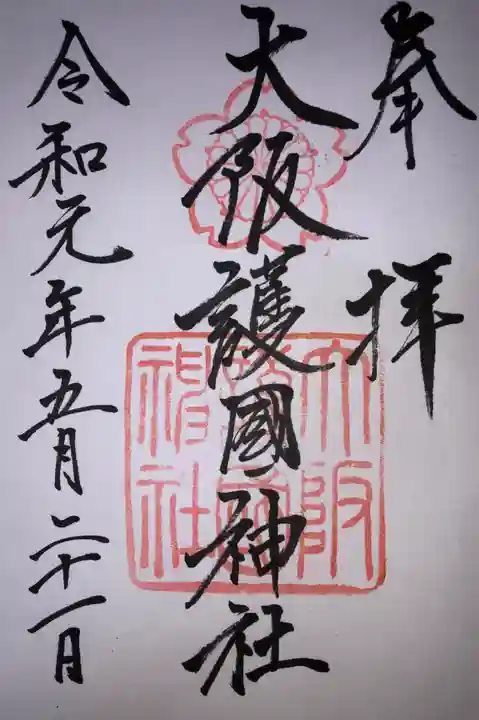 奉拝
大阪護國神社
令和元年五月二十一日
大阪
護國
神社